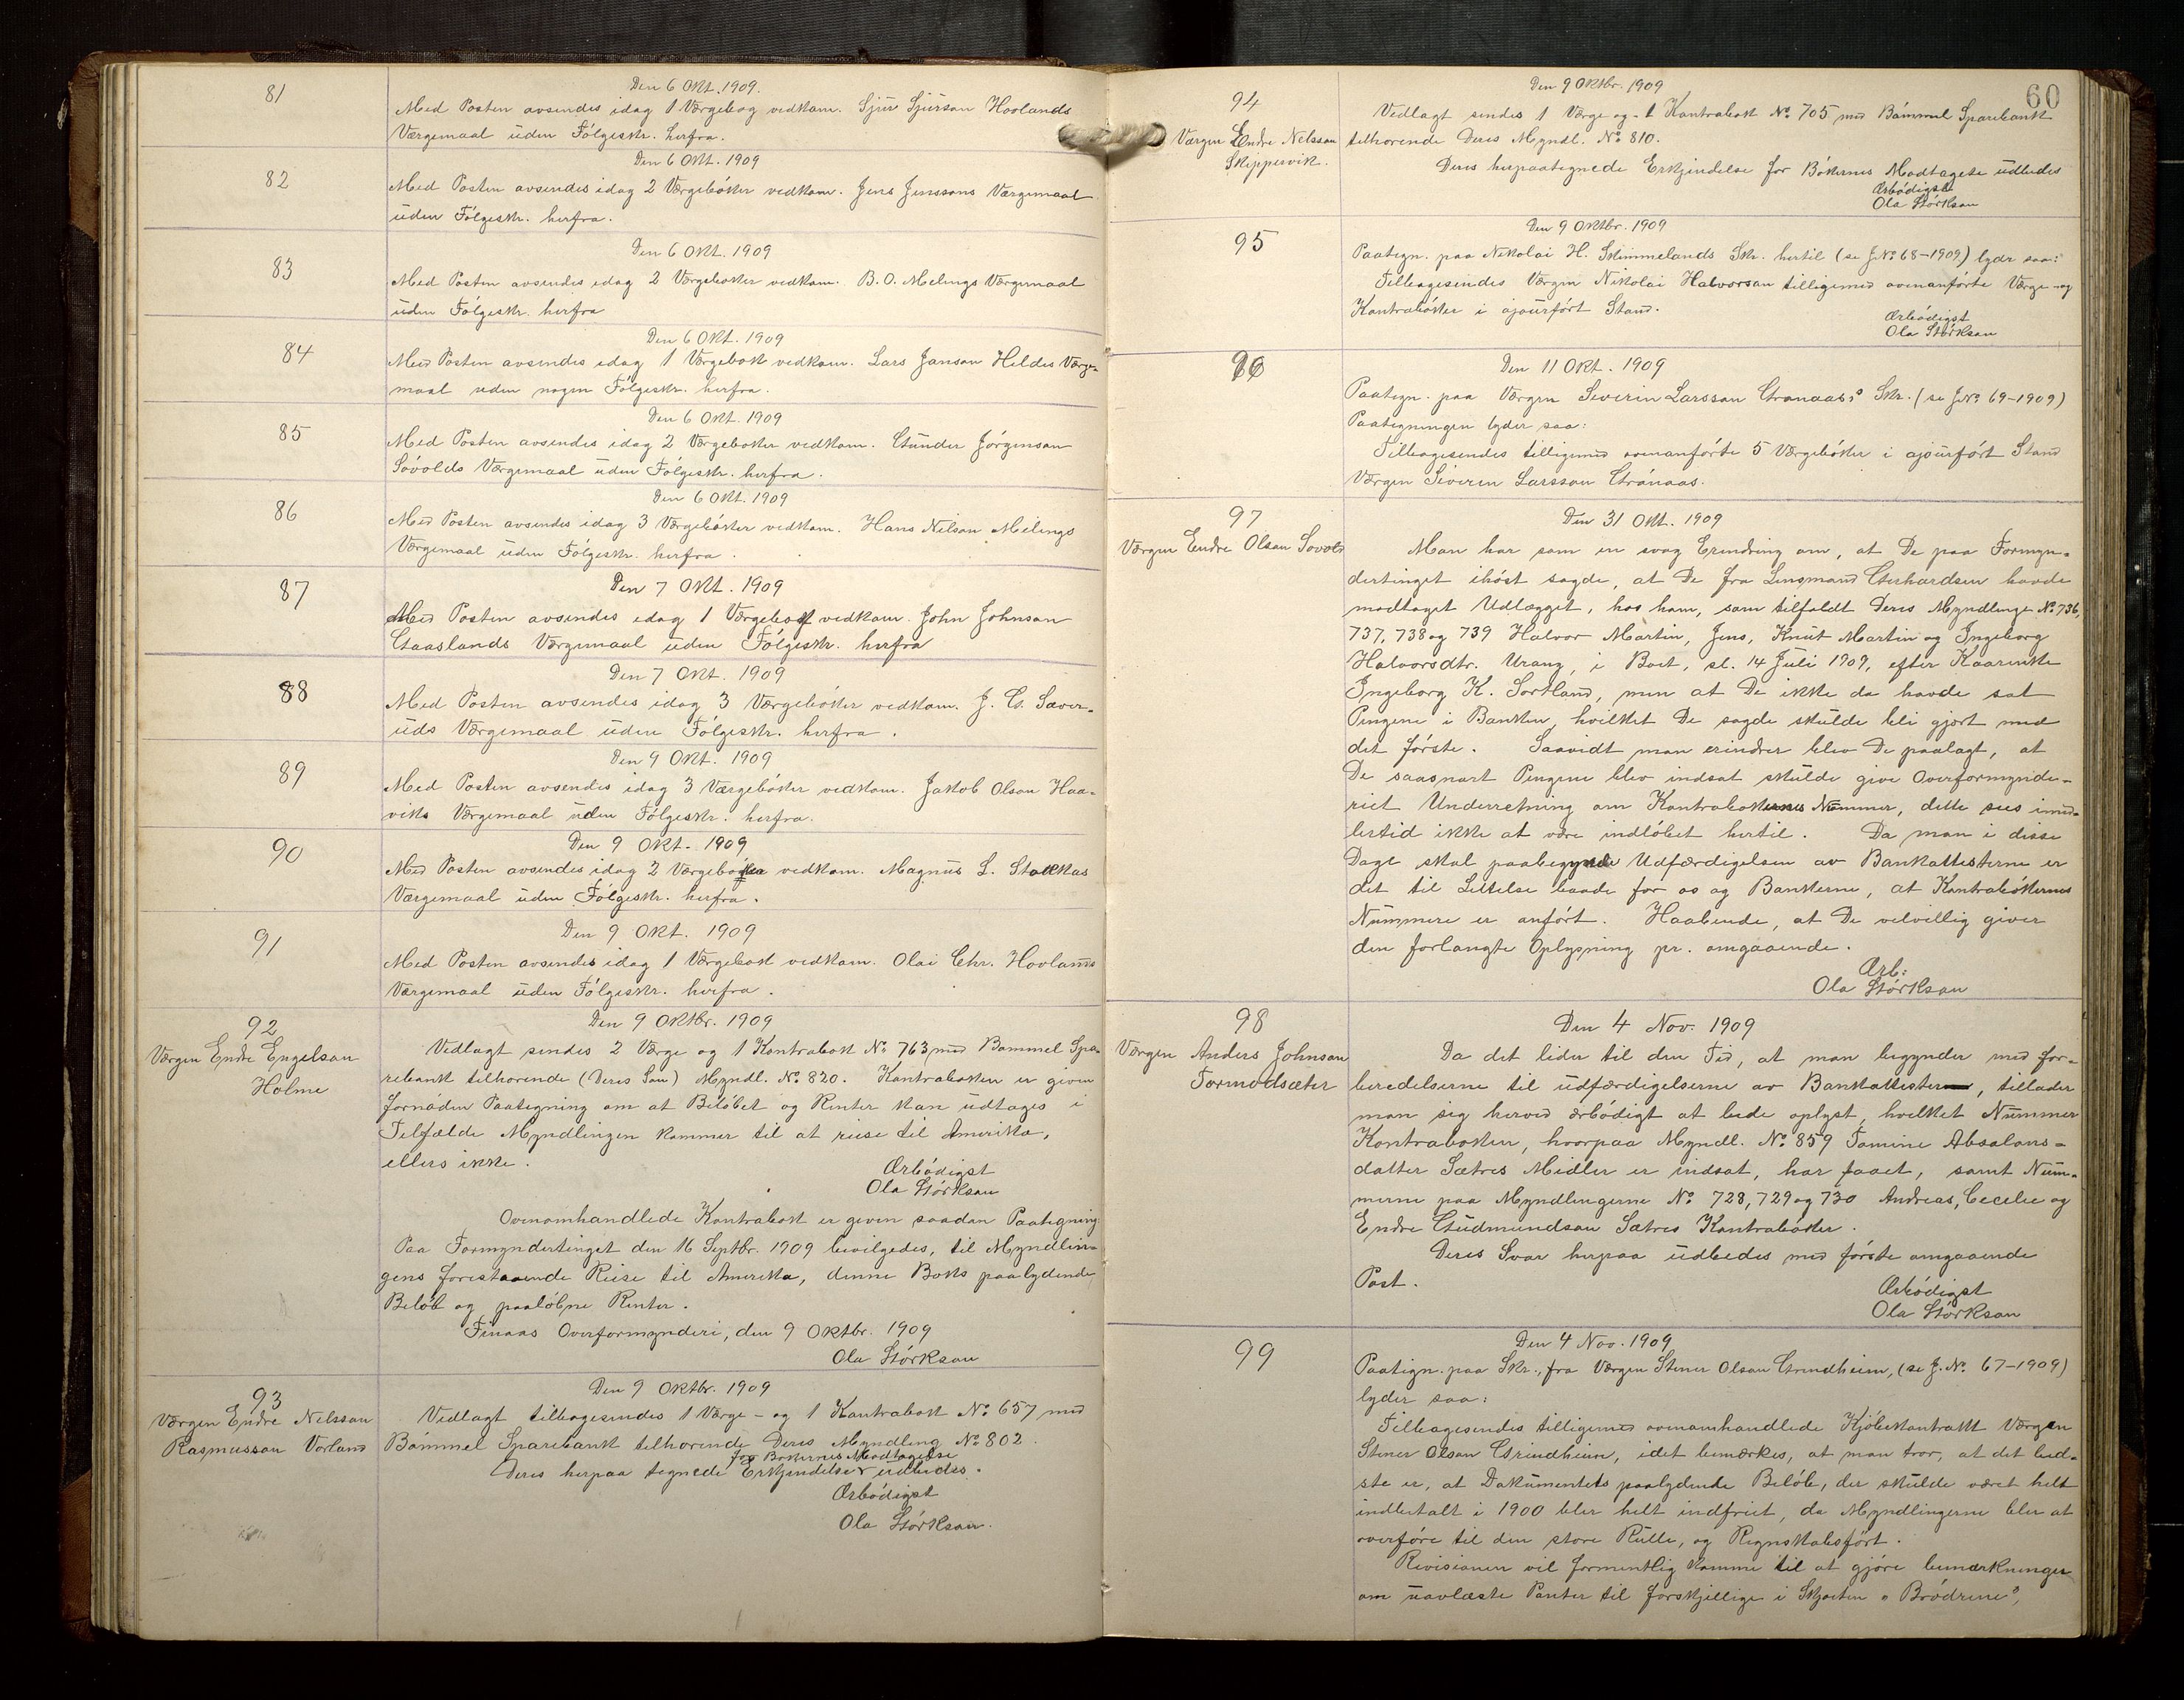 81
Den 6 Okt. 1909.
Med Posten avsendes idag 1 Værgebog vedkom. Sjur Sjursson Hovlands
Værgemaal uden Følgeskr. herfra.
82
Den 6 Okt. 1909
Med Posten avsendes idag 2 Værgebøker vedkom. Jens Jenssons Værgemaal
uden Følgeskr. herfra.
83
Den 6 Okt. 1909
Med Posten avsendes idag 2 Værgebøker vedkom. B. O. Melings Værgemaal
uden Følgeskr. herfra
84
Den 6 Okt. 1909
Med Posten avsendes idag 1 Værgebok vedkom. Lars Janson Heldes Værge-
maal uden nogen Følgeskr. herfra.
85
Den 6 Okt. 1909
Med Posten avsendes idag 2 Værgebøker vedkom. Gunder Jørgenson
Søvolds Værgemaal uden Følgeskr. herfra.
86
Den 6 Okt. 1909
Med Posten avsendes idag 3 Værgebøker vedkom. Hans Nilson Melings
Værgemaal uden Følgeskr. herfra.
87
Den 7 Okt. 1909
Med Posten avsendes idag 1 Værgebok vedkom. John Johnson
Gaaslands Værgemaal uden Følgeskr. herfra
88
Den 7 Okt. 1909
Med Posten avsendes idag 3 Værgebøker vedkom. J. G. Sæver-
uds Værgemaal uden Følgeskr. herfra.
89
Den 9 Okt. 1909
Med Posten avsendes idag 3 Værgebøker vedkom. Jakob Olson Haa-
viks Værgemaal uden Følgeskr. herfra.
90
Den 9 Okt. 1909
Med Posten avsendes idag 2 Værgebøker vedkom. Magnus L. Stokkas
Værgemaal uden Følgeskr. herfra.
91
Den 9 Okt. 1909
Med Posten avsendes idag 1 Værgebok vedkom. Olai Chr. Hovlands
Værgemaal uden Følgeskr. herfra.
92
Værgen Endre Engelson
Holme
Den 9 Oktbr. 1909
Vedlagt sendes 2 Værge og 1 Kontrabok No. 763 med Bømmel Spa-
rebank tilhorende (Deres Søn) Myndl. No. 820. Kontraboken er given
fornøden Paategning om at Beløbet og Renter kan udtages i
Tilfælde Myndlingen kommer til at reise til Amerika,
ellers ikke.
Ærbødigst
Ola Størkson
Ovenomhandlede Kontrabok er given saadan Paategning
Paa Formyndertinget den 16 Septbr. 1909 bevilgedes, til Myndlin-
gens forestaaende Reise til Amerika, denne Boks paalydende
Beløb og paaløbne Renter.
Finaas Overformynderi, den 9 Oktbr. 1909
Ola Størkson
93
Værgen Endre Nelsson
Rasmusson Vorland
Den 9 Oktbr. 1909
Vedlagt tilbagesendes 1 Værge- og 1 Kontrabok No. 657 med
Bømmel Sparebank tilhorende Deres Myndling No. 802
for Bøkernes Modtagelse
Deres herpaa tegnede Erkjendelse udbedes.
Ærbødigst
Ola Størkson.
60
94
Værgen Endre Nelsson
Skippervik.
Den 9 Oktbr. 1909
Vedlagt sendes 1 Værge og 1 Kontrabok No. 705 med Bømmel Sparebank
tilhorende Deres Myndl. No. 810.
Deres herpaategnede Erkjendelse for Bøkernes Modtagelse udbedes
Ærbødigst
Ola Størkson
95
Den 9 Oktbr. 1909
Paategn. paa Nikolai H. Skimmelands Skr. hertil (se J.No. 68-1909) lyder saa:
Tilbagesendes Værgen Nikolai Halvorson tilligemed ovenanførte Værge- og
Kontrabøker i ajourført Stand.
Ærbødigst
Ola Størkson
96
Den 11 Okt. 1909
Paategn. paa Værgen Severin Larsson Grønaas's Skr. (se J.No. 69-1909)
Paategningen lyder saa:
Tilbagesendes tilligemed ovenanførte 5 Værgebøker i ajourført Stand
Værgen Severin Larsson Grønaas.
97
Værgen Endre Olson Sovold
Den 31 Okt. 1909
Man har som en svag Erindring om, at De paa Formyn-
dertinget ihøst sagde, at De fra Lensmand Gerhardsen havde
modtaget Udlægget, hos ham, som tilfaldt Deres Myndlinge No. 736,
737, 738 og 739 Halvor Martin, Jens, Knut Martin og Ingeborg
Halvorsdtr. Urang, i Boet, sl. 14 Juli 1909, efter Kaarenke
Ingeborg K. Sortland, men at De ikke da havde sat
Pengene i Banken, hvilket De sagde skulde bli gjort med
det første. Saavidt man erindrer blev De paalagt, at
De saasnart Pengene blev indsat skulde give Overformynde-
riet Underretning om Kontrabokens Nummer, dette sees imid-
lertid ikke at være indløbet hertil. Da man i disse
Dage skal paabegynde Udfærdigelsen av Bankattesterne er
det til Lettelse baade for os og Bankerne, at Kontrabøkernes
Nummere er anført. Haabende, at De velvillig giver
den forlangte Oplysning pr. omgaaende.
Ærb:
Ola Størkson
98
Værgen Anders Johnson
Tormodsæter
Den 4 Nov. 1909
Da det lider til den Tid, at man begynder med for-
beredelserne til udfærdigelserne av Bankattester, tillader
man sig herved ærbødigt at bede oplyst, hvilket Nummer
Kontraboken, hvorpaa Myndl. No. 859 Tomine Absalons-
datter Sætres Midler er indsat, har faaet, samt Num-
merne paa Myndlingerne No. 728, 729 og 730 Andreas, Cecelie og
Endre Gudmundson Sætres Kontrabøker.
Deres Svar herpaa udbedes med første omgaaende
Post.
Ærbødigst
Ola Størkson
99
Den 4 Nov. 1909
Paategn. paa Skr., fra Værgen Stener Olson Grindheim, (se J. No. 67-1909)
lyder saa:
Tilbagesendes tilligemed ovenomhandlede Kjøbekontrakt Værgen
Stener Olson Grindheim, idet bemærkes, at man tror, at det bed-
ste er, at Dokumentets paalydende Beløb, der skulde været helt
indbetalt i 1900 blir helt indfriet, da Myndlingerne blir at
overføre til den store Rulle, og Regnskabsført.
Revisionen vil formentlig komme til at gjøre bemærkninger
om uavlæste Panter til forskjellige i Skjøten "Brødrene",